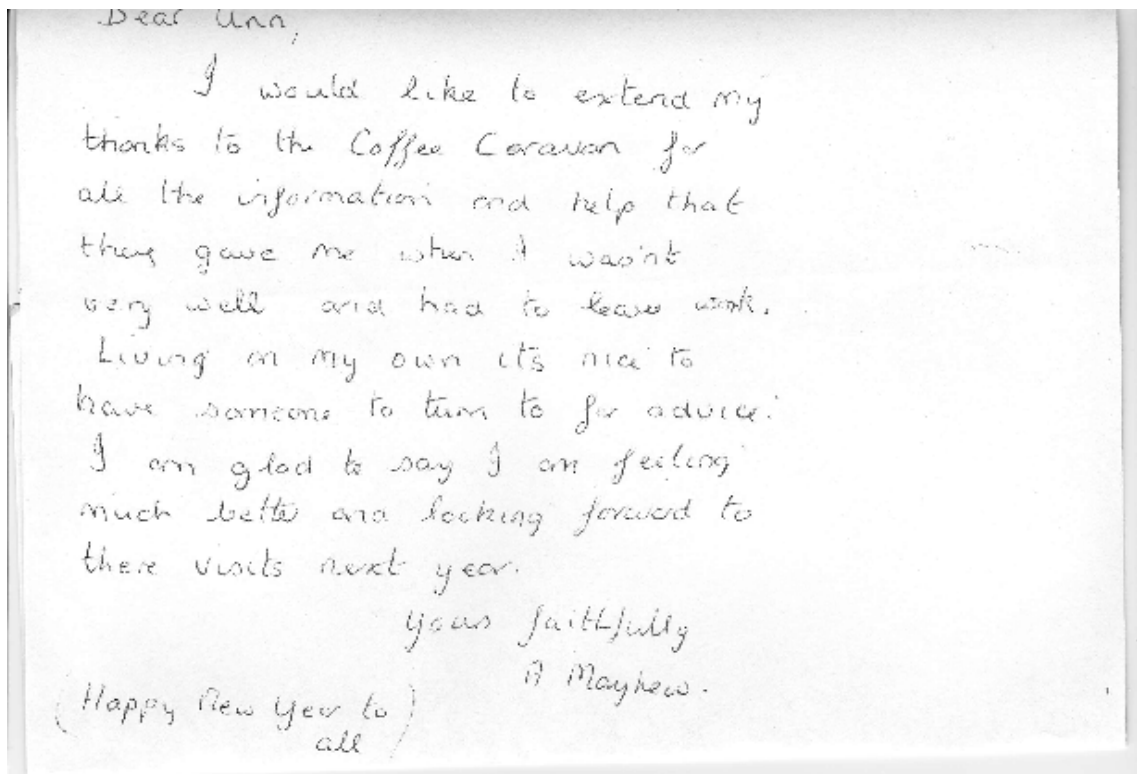 Dear Ann,
I would like to extend my
thanks to the Coffee Caravan for
all the information and help that
they gave me when I was'nt
very well and had to leave work.
Living on my own it's nice to
have someone to turn to for advice.
I am glad to say I am feeling
much better and looking forward to
there visits next year.
yours faithfully
A Mayhew.
(Happy New Year to
all)